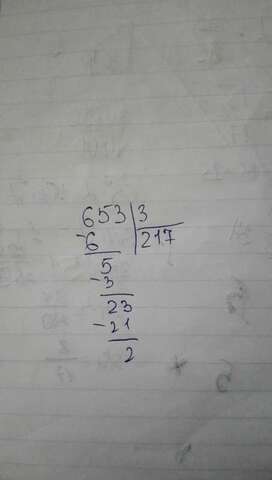 653 3
-6 217
5
-3
23
-21
2